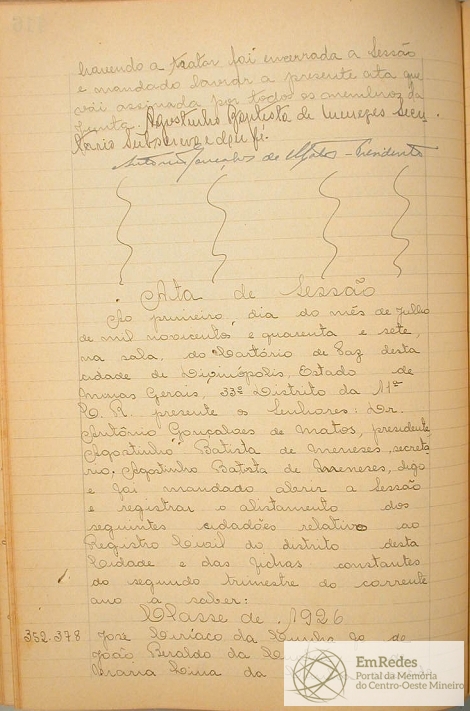 havendo a tratar foi encerrada a Sessão
e mandado lavrar a presente ata que
vai assinada por todos os membros da
Junta. Agostinho Baptista de Menezes Secre-
tario Subscrevo e dou fé.
Antonio Gonçalves de Matos - Presidente
Ata de Sessão
Ao primeiro dia do mês de Julho
de mil novecentos e quarenta e sete
na sala do Cartório de Paz desta
cidade de Divinópolis, Estado de
Minas Gerais, 33º Distrito da 11ª
C. R. presente os Senhores: Dr.
Antônio Gonçalves de Matos, presidente
Agostinho Batista de Meneses, secretá
rio. Agostinho Batista de Meneses, digo
e foi mandado abrir a Sessão
e registrar o alistamento dos
seguintes cidadões relativo ao
Registro Civil do distrito desta
Cidade e das fichas constantes
do segundo trimestre do corrente
ano a saber:
Classe de 1926
352.378 José Ciríaco da Cunha fº de
João Beraldo da
Maria Lina da
EmRedes
Portal da Memória
do Centro-Oeste Mineiro